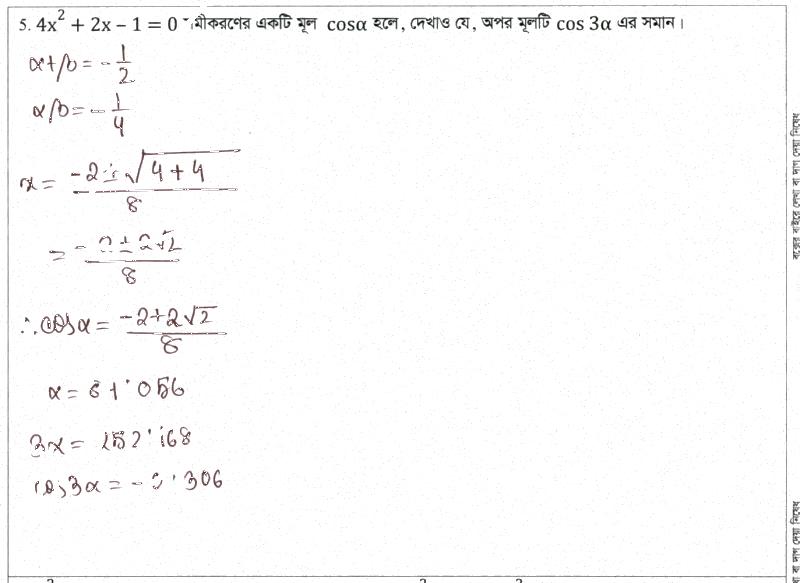 5. 4x² + 2x – 1 = 0 সমীকরণের একটি মূল cosα হলে, দেখাও যে, অপর মূলটি cos 3α এর সমান।
α+β = -1/2
αβ = -1/4
x = (-2 ± √(4+4))/8
= (-2 ± 2√2)/8
∴ cosα = (-2+2√2)/8
α =
3α = 252.168
cos3α = -0.306
বক্সের বাইরে লেখা বা দাগ দেয়া নিষেধ
বা দাগ দেয়া নিষেধ